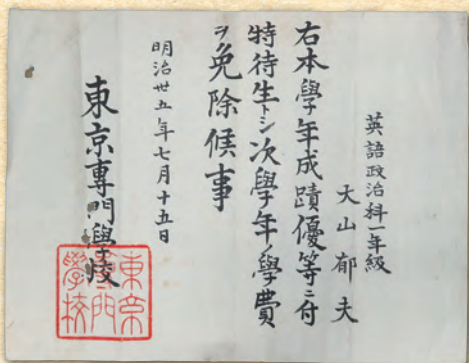 英語政治科一年級
大山郁夫
右本學年成蹟優等ニ付
特待生トシ次學年ノ學費
ヲ免除候事
明治卅五年七月十五日
東京專門學校
東京
專門
學校